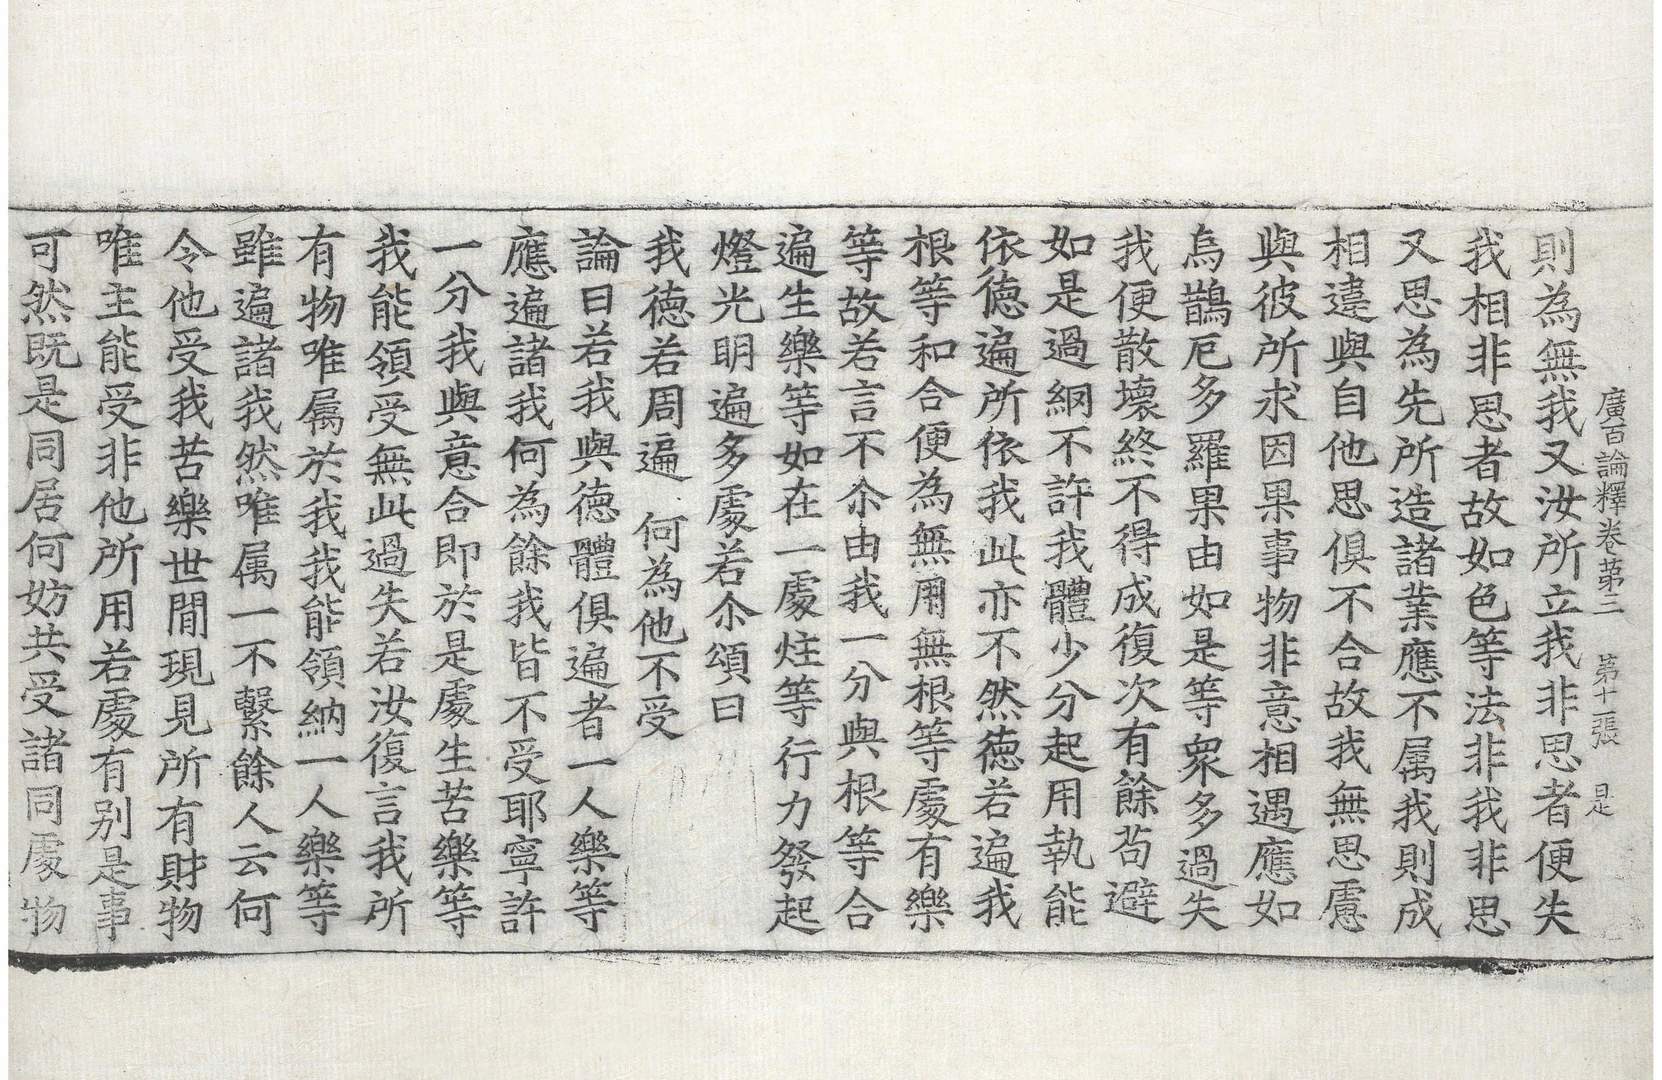 廣百論釋卷第三 第十一張 是
則為無我又汝所立我非思者便失
我相非思者故如色等法非我非思
又思為先所造諸業應不属我則成
相違與自他思俱不合故我無思慮
與彼所求因果事物非意相遇應如
烏鵲厄多羅果由如是等衆多過失
我便散壞終不得成復次有餘苟避
如是過網不許我體少分起用執能
依徳遍所依我此亦不然徳若遍我
根等和合便為無用無根等處有樂
等故若言不尒由我一分與根等合
遍生樂等如在一處炷等行力發起
燈光明遍多處若尒頌曰
我德若周遍 何為他不受
論曰若我與德體俱遍者一人樂等
應遍諸我何為餘我皆不受耶寧許
一分我與意合即於是處生苦樂等
我能領受無此過失若汝復言我所
有物唯屬於我我能領納一人樂等
雖遍諸我然唯属一不繫餘人云何
令他受我苦樂世間現見所有財物
唯主能受非他所用若處有别是事
可然既是同居何妨共受諸同處物